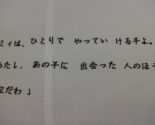 ミィは、ひとりで やってい ける子よ。
たし、 あの子に 出会った 人のほ
配だわ」